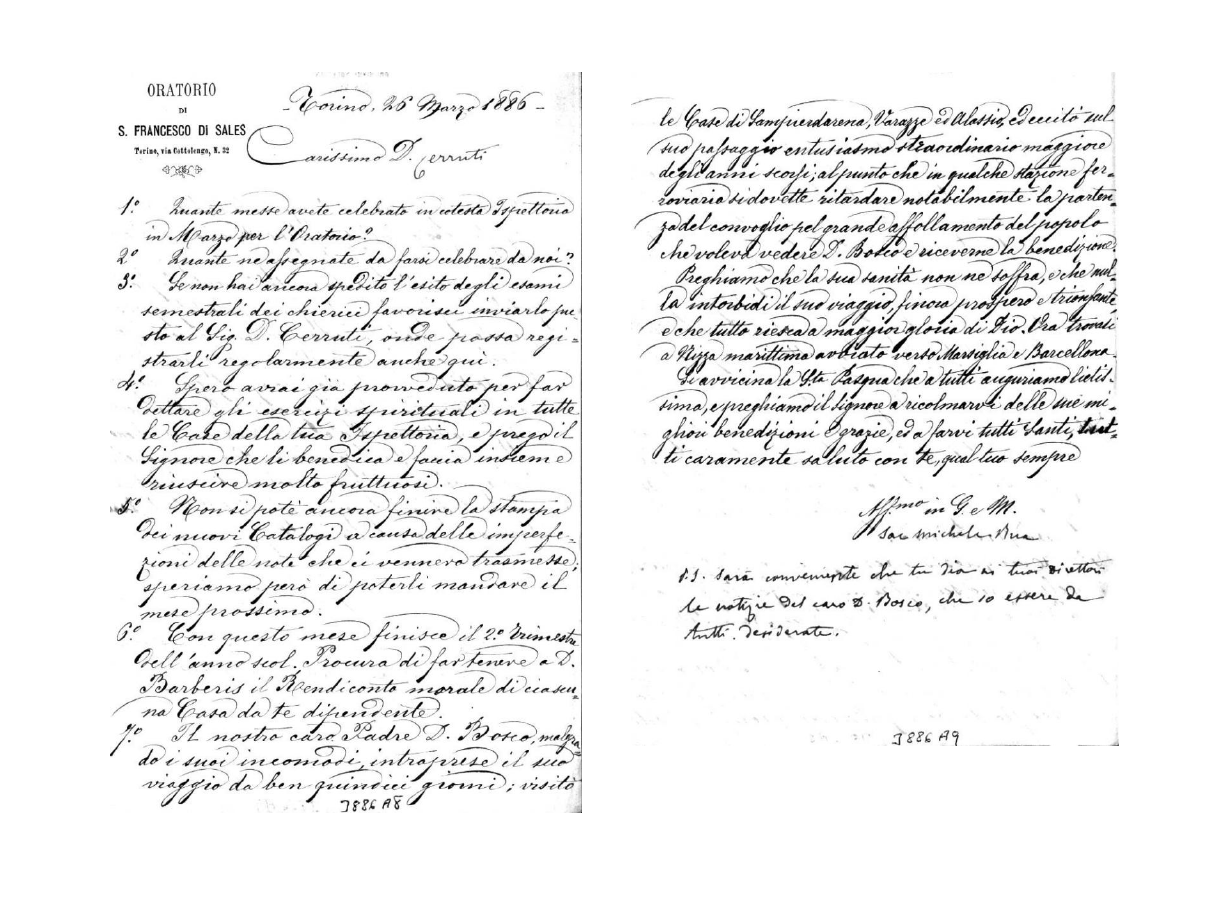 ORATORIO
DI
S. FRANCESCO DI SALES
Torino, via Cottolengo, N. 32
- Torino, 26 Marzo 1886 -
Carissimo D. Cerruti
1.° Quante messe avete celebrato in cotesta Ispettoria
in Marzo per l'Oratorio?
2.° Quante ne assegnate da farsi celebrare da noi?
3.° Se non hai ancora spedito l'esito degli esami
semestrali dei chierici favorisci inviarlo pre
sto al Sig. D. Cerruti, onde possa regi-
strarli regolarmente anche qui.
4.° Spero avrai già provveduto per far
dettare gli esercizi spirituali in tutte
le Case della tua Ispettoria, e prego il
Signore che li benedica e faccia insieme
riuscire molto fruttuosi.
5.° Non si potè ancora finire la stampa
dei nuovi Catalogi a causa delle imperfe-
zioni delle note che ci vennero trasmesse;
speriamo però di poterli mandare il
mese prossimo.
6.° Con questo mese finisce il 2.° trimestre
dell'anno scol. Procura di far tenere a D.
Barberis il Rendiconto morale di ciascu-
na Casa da te dipendente.
7.° Il nostro caro Padre D. Bosco, malgra
do i suoi incomodi, intraprese il suo
viaggio da ben quindici giorni; visitò
J886 A8
le Case di Sampierdarena, Varazze ed Alassio, ed eccitò sul
suo passaggio entusiasmo straordinario maggiore
degli anni scorsi; al punto che in qualche stazione fer-
roviaria si dovette ritardare notabilmente la parten-
za del convoglio pel grande affollamento del popolo
che voleva vedere D. Bosco e riceverne la benedizione.
Preghiamo che la sua sanità non ne soffra, e che nul-
la intorbidi il suo viaggio, finora prospero e trionfante
e che tutto riesca a maggior gloria di Dio. Ora trovasi
a Nizza marittima avviato verso Marsiglia e Barcellona.
Si avvicina la S.ta Pasqua che a tutti auguriamo lietis-
sima, e preghiamo il Signore a ricolmarvi delle sue mi-
gliori benedizioni e grazie, ed a farvi tutti Santi,
ti caramente saluto con te, qual tuo sempre
Aff.mo in G. e M.
Sac. Michele Rua
P.S. Sarà conveniente che tu dia ai tuoi Direttori
le notizie del caro D. Bosco, che so essere da
tutti desiderate.
J886 A9